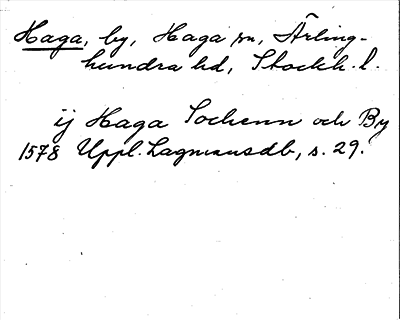 Haga, by, Haga sn, Ärling-
hundra hd, Stockh. l.
ij Haga Sochenn och By
1578 Uppl. Lagmansdb, s. 29.